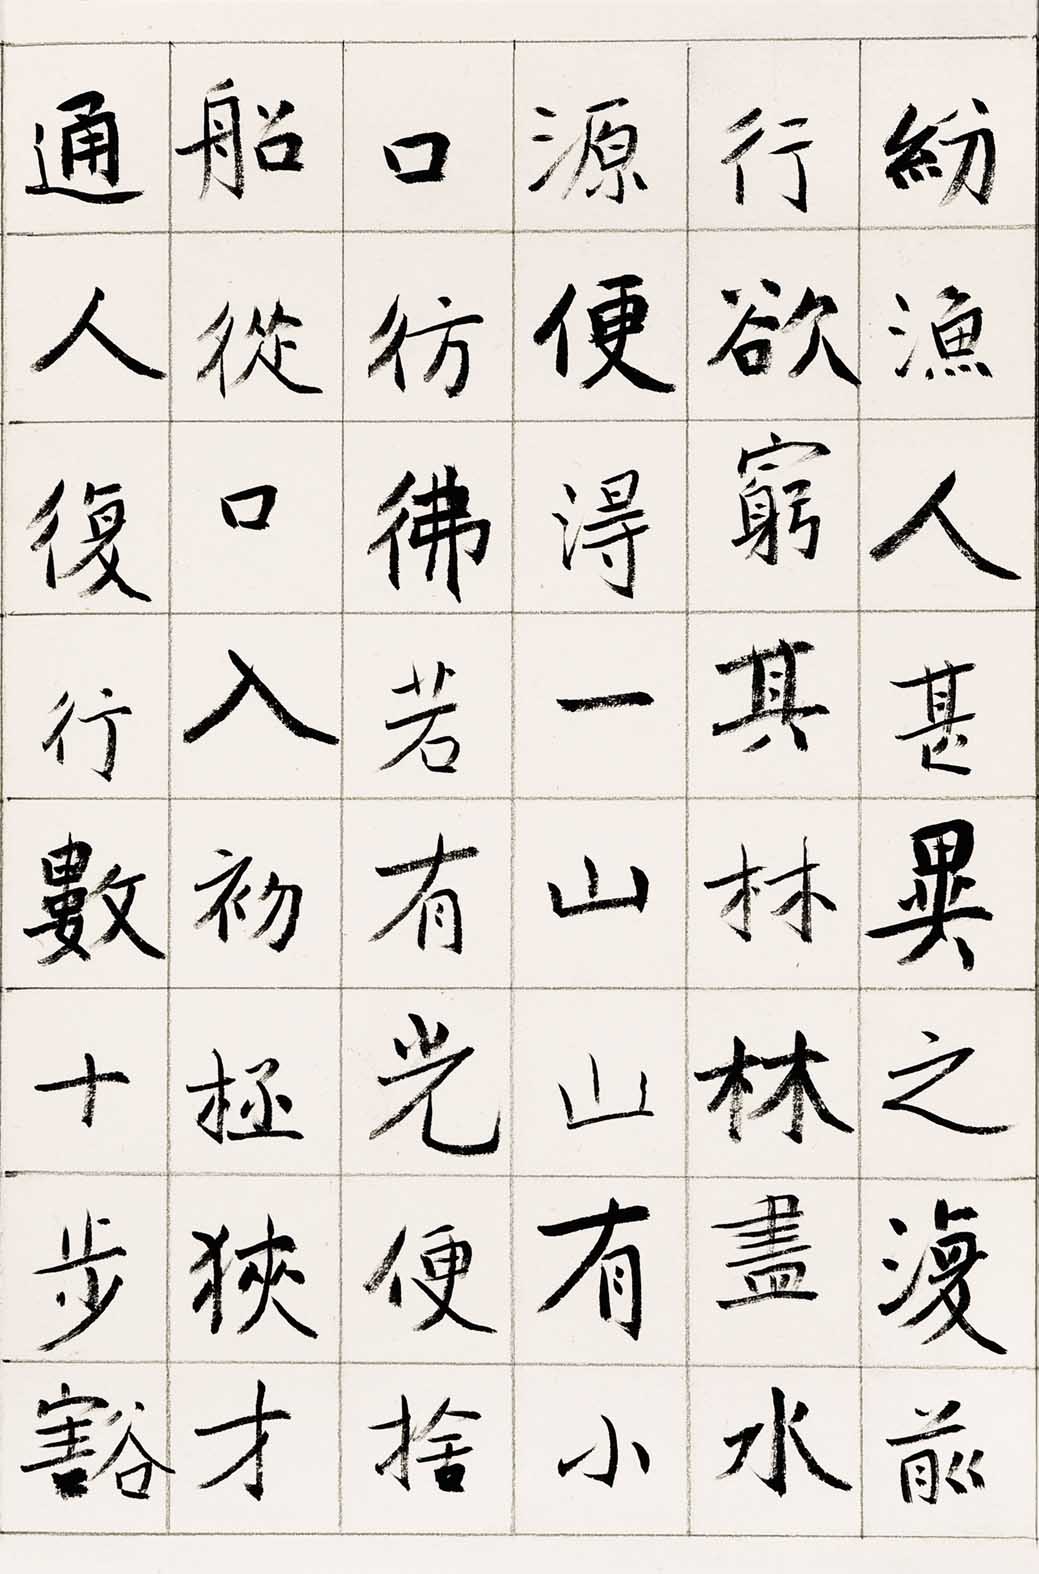 紛漁人甚異之復前
行欲窮其林林盡水
源便得一山山有小
口彷彿若有光便捨
船從口入初極狹才
通人復行數十步豁